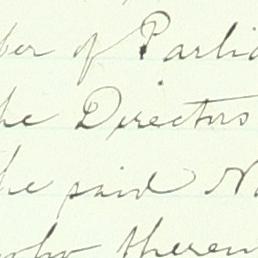 ber of Parlia
he Directors
he said N
who theren